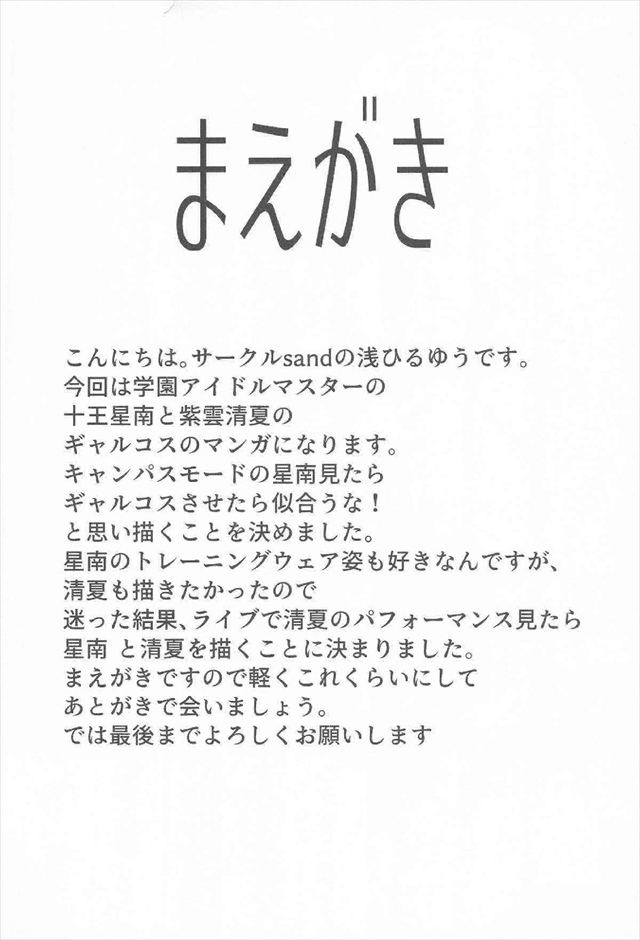 まえがき
こんにちは。サークルsandの浅ひるゆうです。
今回は学園アイドルマスターの
十王星南と紫雲清夏の
ギャルコスのマンガになります。
キャンパスモードの星南見たら
ギャルコスさせたら似合うな！
と思い描くことを決めました。
星南のトレーニングウェア姿も好きなんですが、
清夏も描きたかったので
迷った結果、ライブで清夏のパフォーマンス見たら
星南 と清夏を描くことに決まりました。
まえがきですので軽くこれくらいにして
あとがきで会いましょう。
では最後までよろしくお願いします